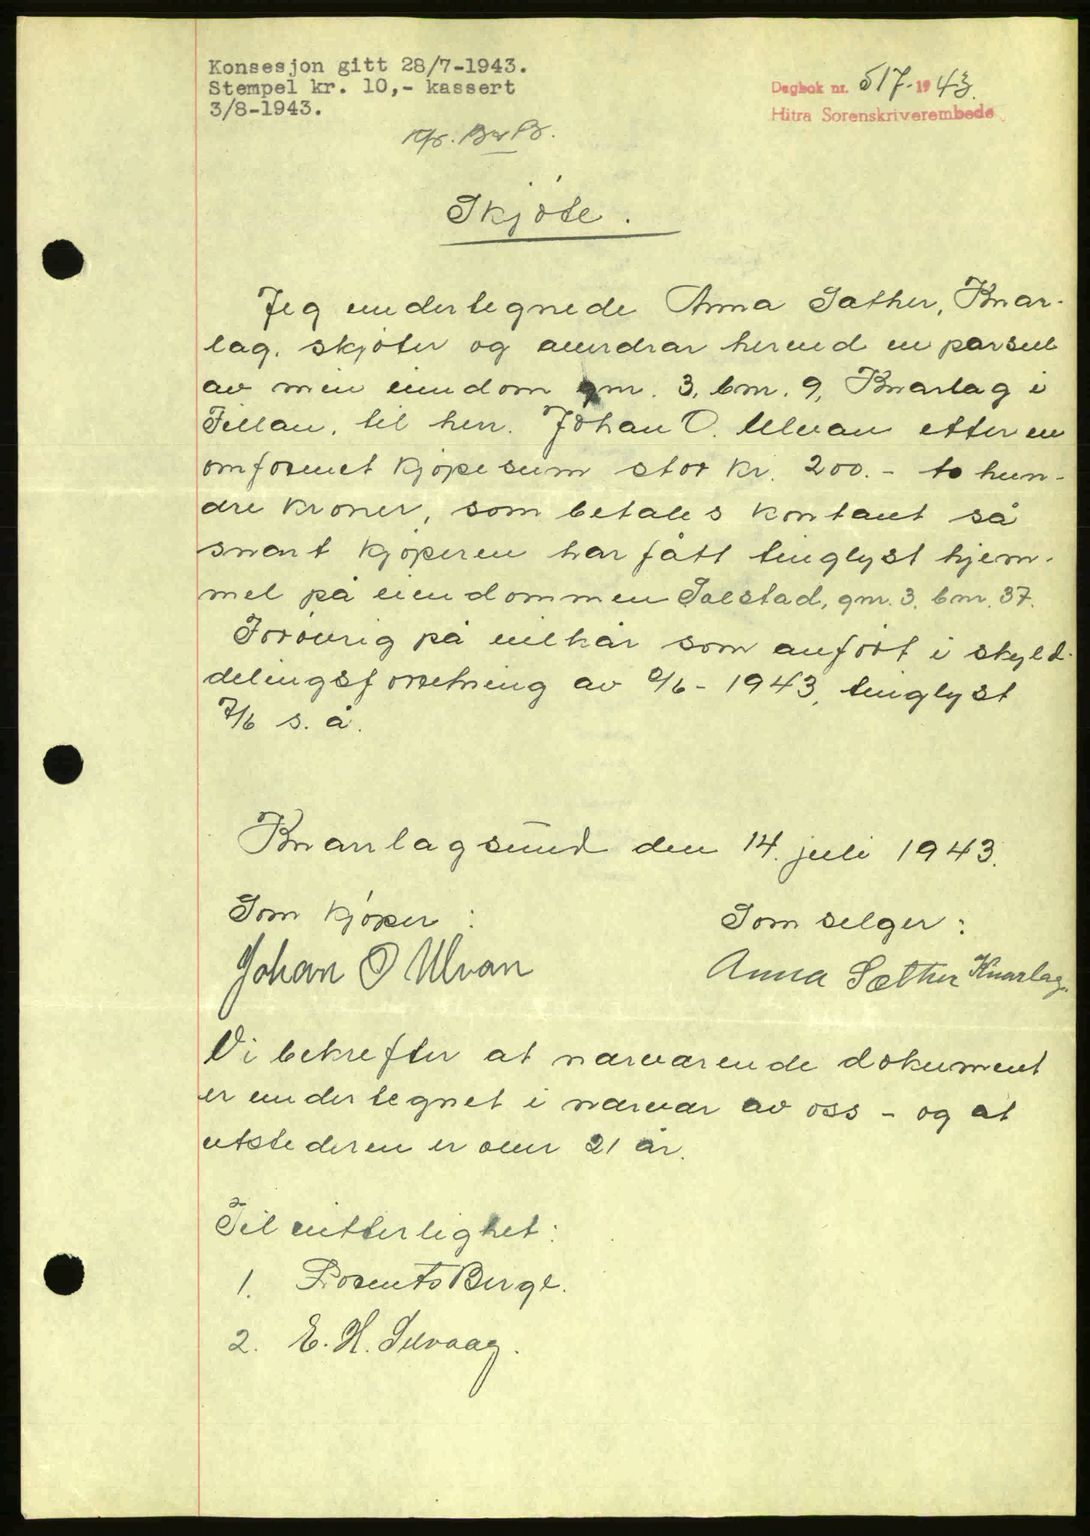 Konsesjon gitt 28/7-1943.
Stempel kr. 10,- kassert
3/8-1943.
Dagbok nr. 517-1943.
Hitra Sorenskriverembede
Skjøte.
Jeg undertegnede Anna Sæther, Knar-
lag, skjøter og overdrar herved en parsell
av min eiendom gnr. 3, bnr. 9, Knarlag i
Fillan, til herr. Johan O. Ulvan etter en
omforenet kjøpesum stor kr. 200.- to hun-
dre kroner, som betales kontant så
snart kjøperen har fått tinglyst hjem-
mel på eiendommen Solstad, gnr. 3, bnr. 37.
Forøvrig på vilkår som anført i skyld-
delingsforretning av /6-1943, tinglyst
7/6 s. å.
Knarrlagsund den 14. juli 1943.
Som kjøper:
Som selger:
Johan O Ulvan
Anna Sæther Knarlag.
Vi bekrefter at nærværende dokument
er undertegnet i nærvær av oss - og at
utstederen er over 21 år.
Til vitterlighet:
1. Lorents Berge.
2. E. H. Selvaag.